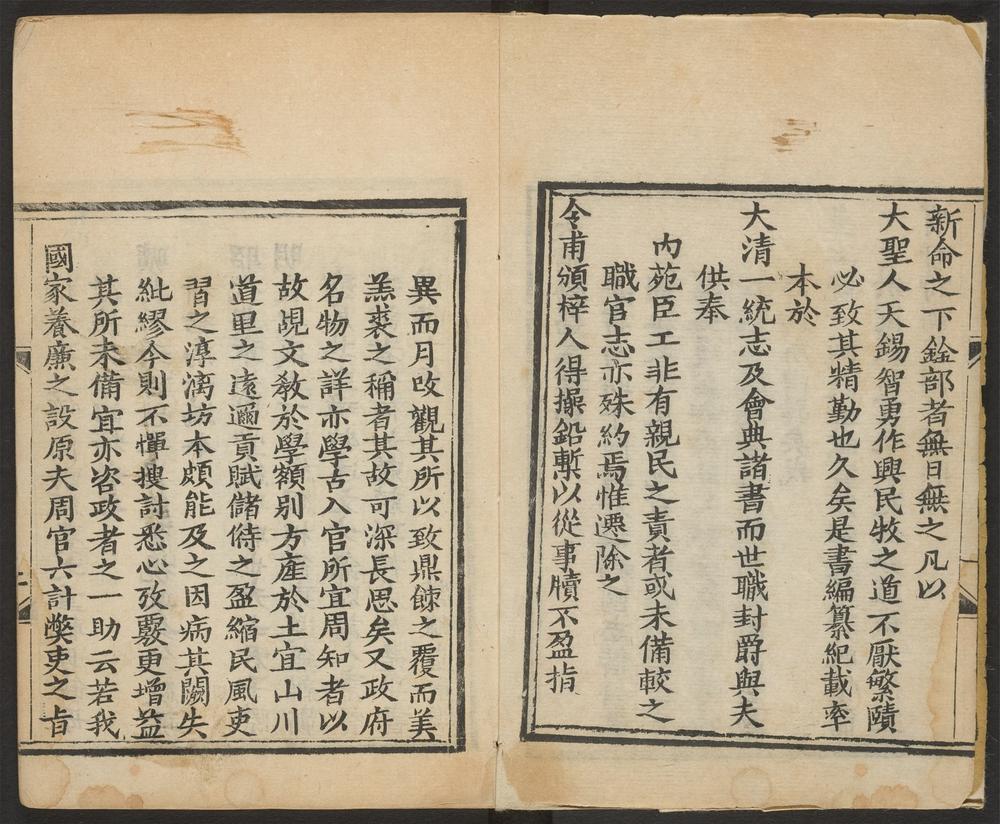 新命之下銓部者無日無之凡以
大聖人天錫智勇作興民牧之道不厭繁賾
必致其精勤也久矣是書編纂紀載率
本於
大清一統志及會典諸書而世職封爵與夫
供奉
內苑臣工非有親民之責者或未備較之
職官志亦殊約焉惟遷除之
令甫頒梓人得操鉛槧以從事牘不盈指
異而月攺觀其所以致鼎餗之覆而美
羔裘之稱者其故可深長思矣又政府
名物之詳亦學古入官所宜周知者以
故覘文敎於學額别方產於土宜山川
道里之遠邇貢賦儲偫之盈縮民風吏
習之淳漓坊本頗能及之因病其闕失
紕繆今則不憚搜討悉心攷覈更增益
其所未備宜亦咨政者之一助云若我
國家養廉之設原夫周官六計獘吏之㫖